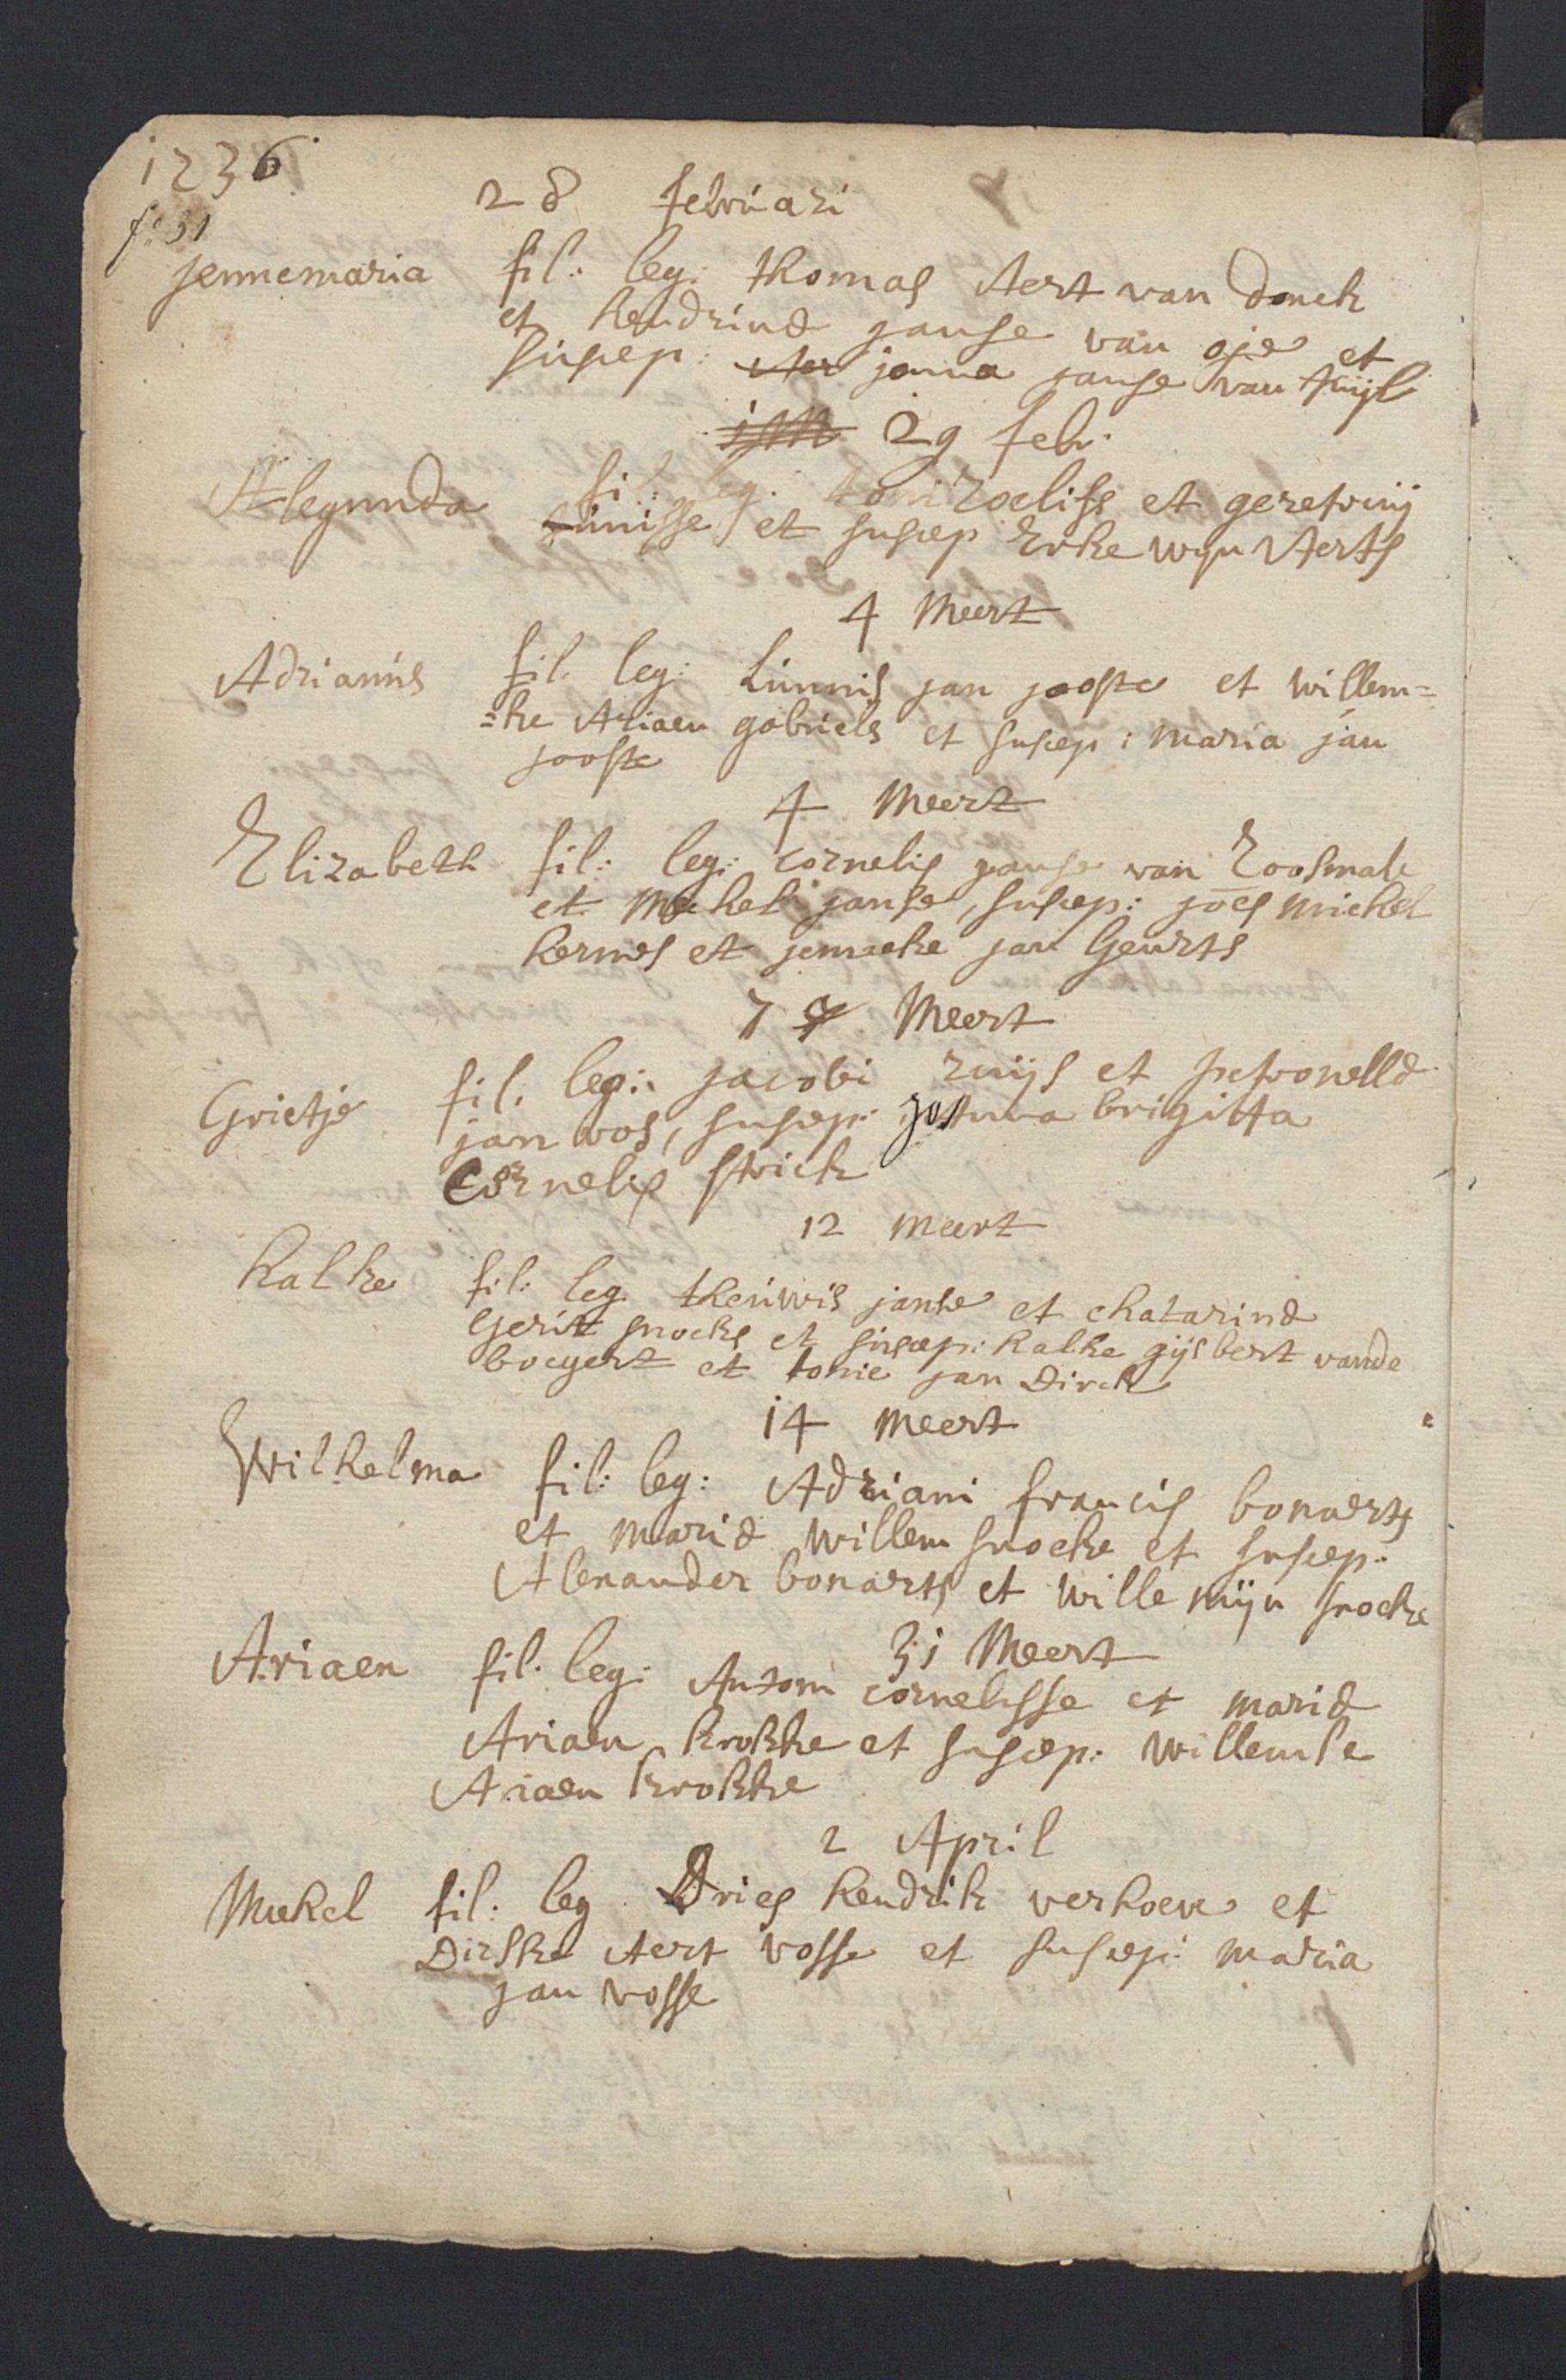 1736
fo 31
28 februari
Jennemaria fil: leg: thomas Aert van Donck
et hendrina janse van oje et
suscep: Aer janna janse van tuijl
29 feb.
Alegunda fil: leg. toni roeliss et geretruij
tunisse et suscep Erke wyn Aerts
4 Meert
Adrianus fil. leg: Linnis jan jooste et willem=
=ke Ariaen gabriels et suscep: maria jan
jooste
4 Meert
Elizabeth fil: leg: cornelis janse van Roosmale
et Mechel janse, suscep: joes michel
hermes et jenneke jan Geurts
7 Meert
Grietje fil. leg: jacobi ruijs et petronella
jan vos, suscep: brigitta
Cornelis strick
12 meert
halke fil: leg theuwis janse et chatarina
Gerit snocks et suscep: halke gijsbert vande
bogert et tonie jan Dirck
14 meert
Wilhelma fil: leg: Adriani francis bonaerts
et maria willem snocke et suscep:
Alexander bonaerts et wille mijn snocke
31 Meert
Ariaen fil. leg: Antoni cornelisse et maria
Ariaen krokke et suscep: willemke
Ariaen krokke
2 April
Michel fil: leg Dries hendrik verhoeve et
Dirske Aert vosse et suscep: maria
jan vosse